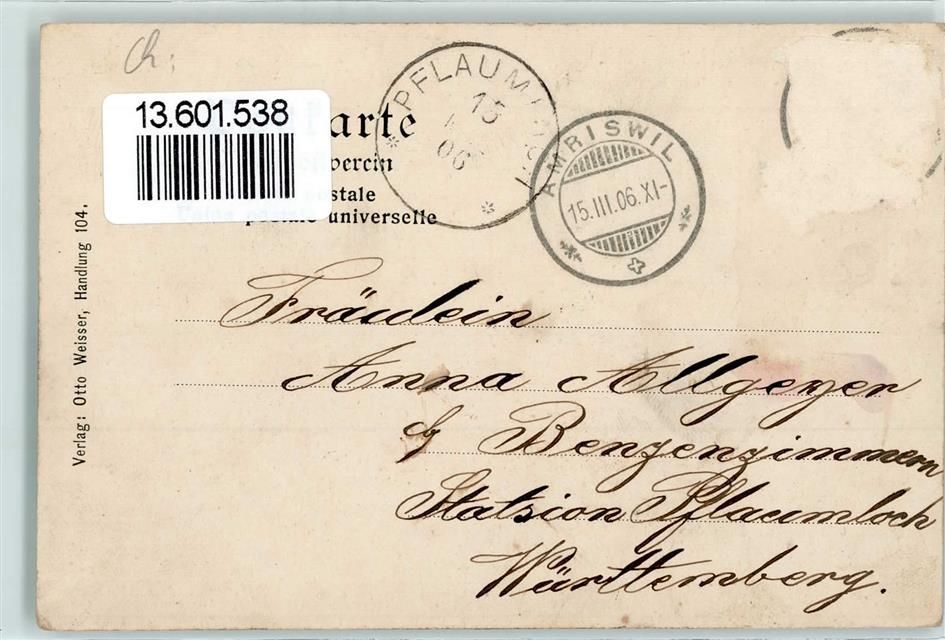 Ch:
13.601.538
arte
verein
stale
postale universelle
PFLAUM
15
06
AMRISWIL
15.III.06.XI-
Verlag: Otto Weisser, Handlung 104.
Fräulein
Anna Allgeyer
Benzenzimmern
Statsion Pflaumloch
Württemberg.